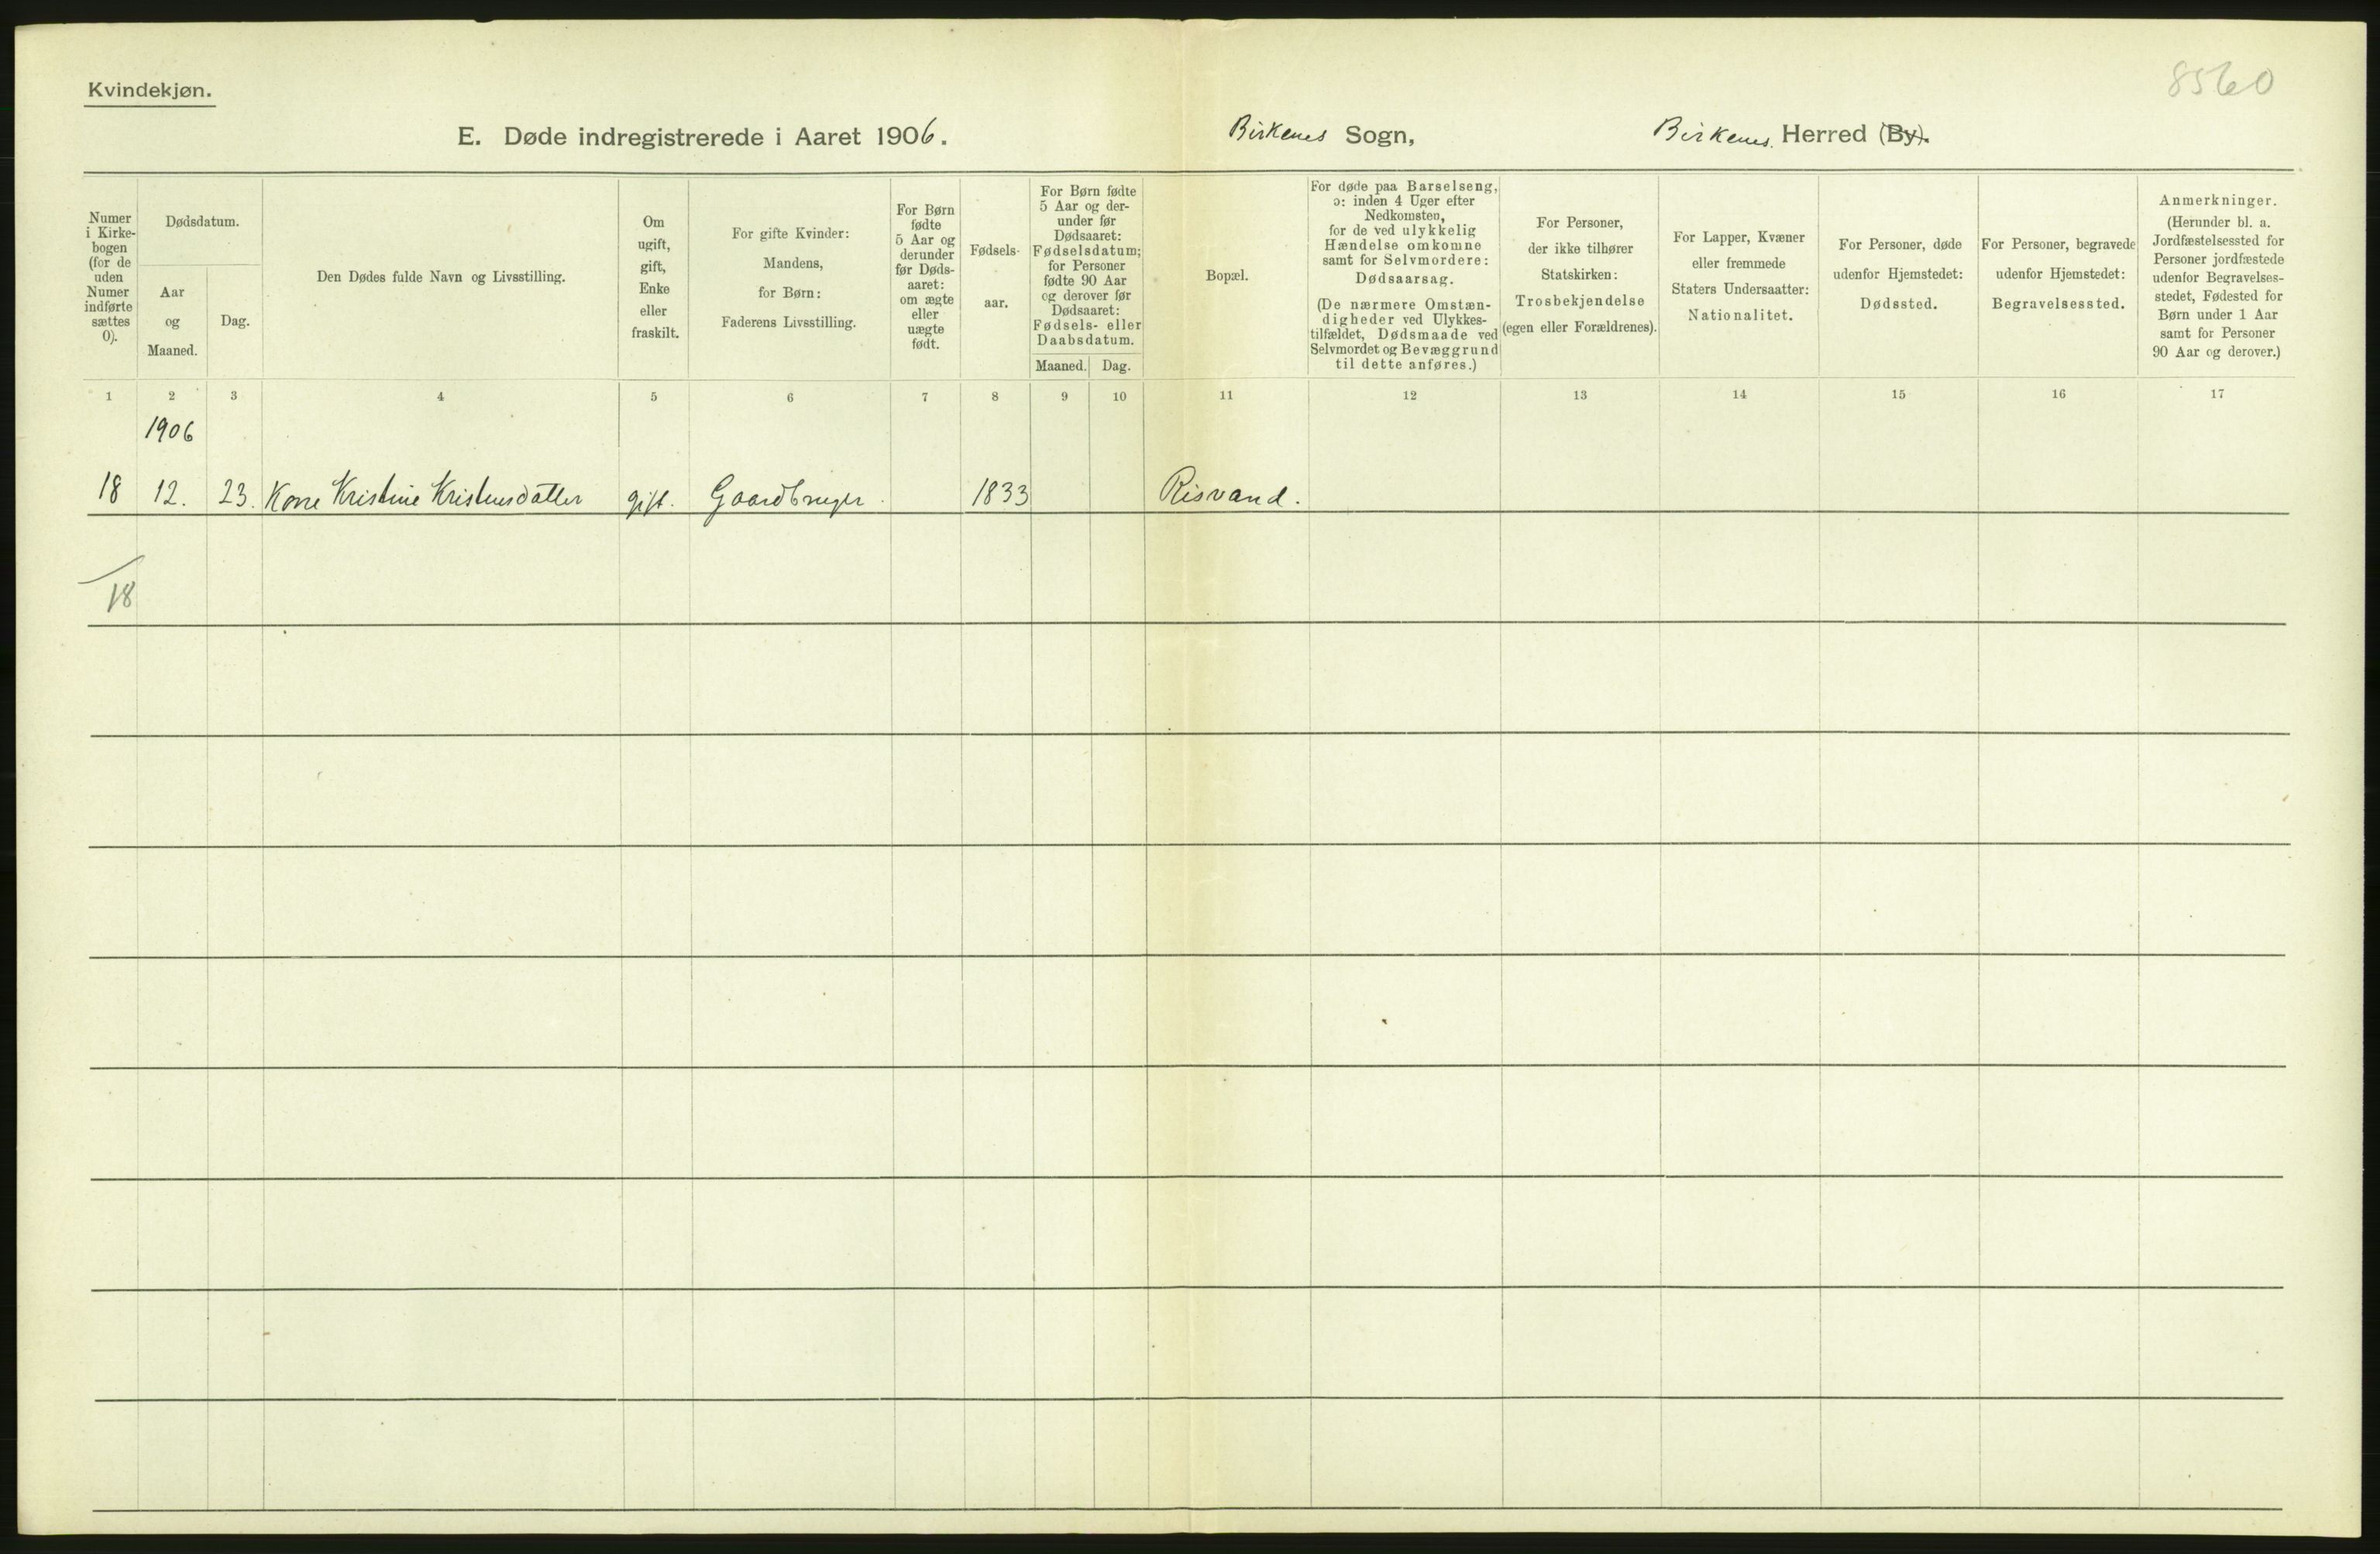 Kvindekjøn.
8560
E. Døde indregistrerede i Aaret 1906.
Birkenes Sogn,
Birkenes. Herred (By).
Numer
i Kirke-
bogen
(for de
uden
Numer
indførte
sættes
0).
Dødsdatum.
Aar
og
Maaned.
Dag.
Den Dødes fulde Navn og Livsstilling.
Om
ugift,
gift,
Enke
eller
fraskilt.
For gifte Kvinder:
Mandens,
for Børn:
Faderens Livsstilling.
For Børn
fødte
5 Aar og
derunder
før Døds-
aaret:
om ægte
eller
uægte
født.
Fødsels-
aar.
For Børn fødte
5 Aar og der-
under før
Dødsaaret:
Fødselsdatum;
for Personer
fødte 90 Aar
og derover før
Dødsaaret:
Fødsels- eller
Daabsdatum.
Maaned. Dag.
Bopæl.
For døde paa Barselseng,
ɔ: inden 4 Uger efter
Nedkomsten,
for de ved ulykkelig
Hændelse omkomne
samt for Selvmordere:
Dødsaarsag.
(De nærmere Omstæn-
digheder ved Ulykkes-
tilfældet, Dødsmaade ved
Selvmordet og Bevæggrund
til dette anføres.)
For Personer,
der ikke tilhører
Statskirken:
Trosbekjendelse
(egen eller Forældrenes).
For Lapper, Kvæner
eller fremmede
Staters Undersaatter:
Nationalitet.
For Personer, døde
udenfor Hjemstedet:
Dødssted.
For Personer, begravede
udenfor Hjemstedet:
Begravelsessted.
Anmerkninger.
(Herunder bl. a.
Jordfæstelsessted for
Personer jordfæstede
udenfor Begravelses-
stedet, Fødested for
Børn under 1 Aar
samt for Personer
90 Aar og derover.)
1 2 3 4 5 6 7 8 9 10 11 12 13 14 15 16 17
1906
18 12. 23. Kristine Kristensdatter gift. Gaardbruger. 1833 Risvand.
18